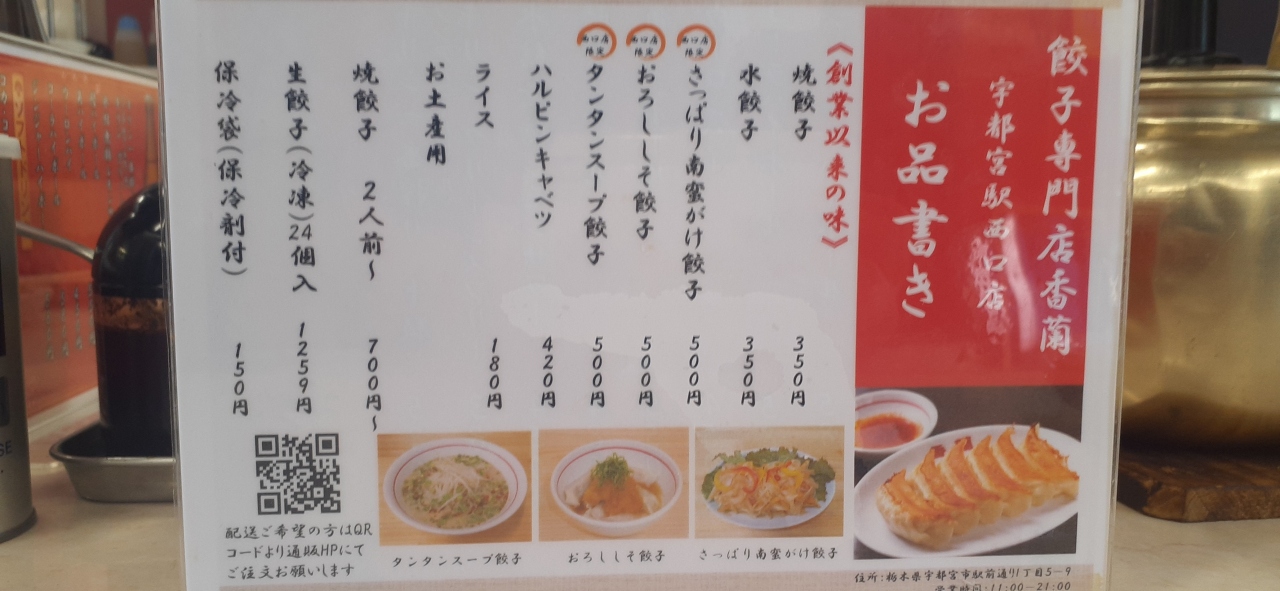 餃子専門店香蘭
宇都宮駅西口店
お品書き
《創業以来の味》
焼餃子 350円
水餃子 350円
西口店
限定
さっぱり南蛮がけ餃子 500円
西口店
限定
おろししそ餃子 500円
西口店
限定
タンタンスープ餃子 500円
ハルピンキャベツ 420円
ライス 180円
お土産用
焼餃子 2人前〜 700円〜
生餃子(冷凍)24個入 1259円
保冷袋(保冷剤付) 150円
配送ご希望の方はQR
コードより通販HPにて
ご注文お願いします
タンタンスープ餃子
おろししそ餃子
さっぱり南蛮がけ餃子
住所:栃木県宇都宮市駅前通り1丁目5-9
営業時間:11:00〜21:00